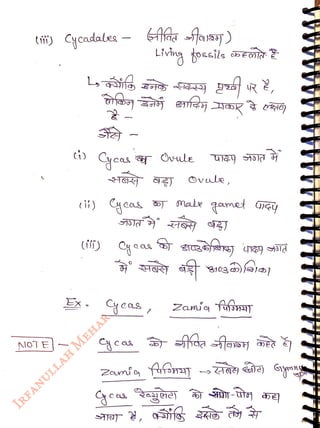 (iii) Cycadales - (जीवित जीवाश्म)
Living fossils कहलाते है
↳ क्योंकि इनके सदस्य पृथ्वी पर है,
लेकिन इनमें आदिम प्रकार के लक्षण
है -
जैसे -
(i) Cycas का Ovule पादप जगत में
सबसे बड़ा Ovule,
(ii) Cycas का male gamet पादप
जगत में सबसे बड़ा
(iii) Cycas की अण्डकोशिका पादप जगत
में सबसे बड़ी अण्डकोशिका
Ex. Cycas, Zamia पिग्मिया
NOTE - Cycas को जीवित जीवाश्म कहते है।
Zamia पिग्मिया → सबसे छोटा Gymno
Cycas रेवुलेटा को सागो-पाम कहा
जाता है, क्योंकि इसके तने से
IRFANULLAH MEHAR